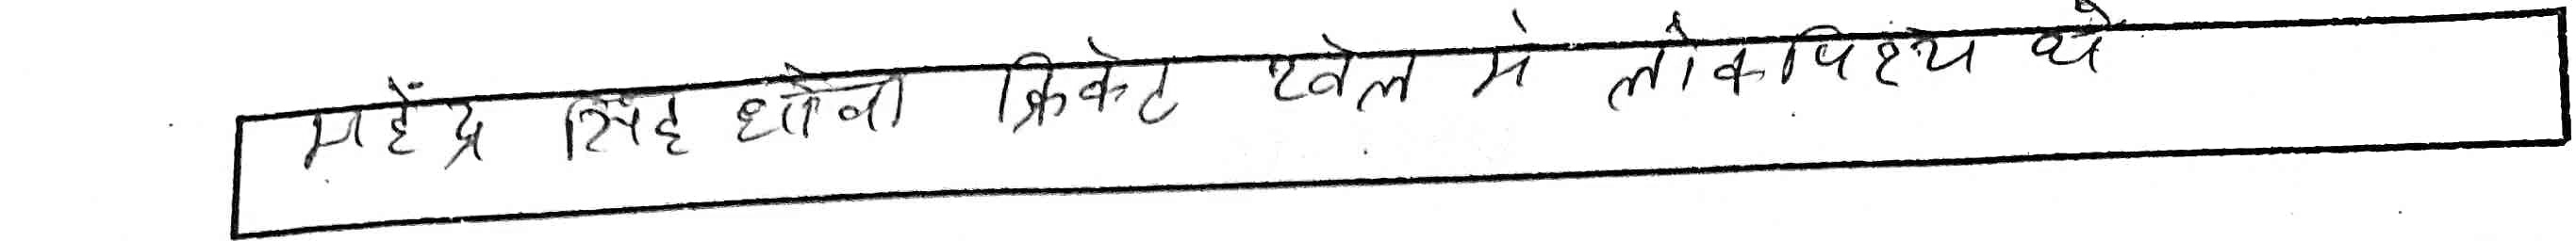 महेंद्र सिंह धोनी क्रिकेट खेल मे लोकप्रिय थे